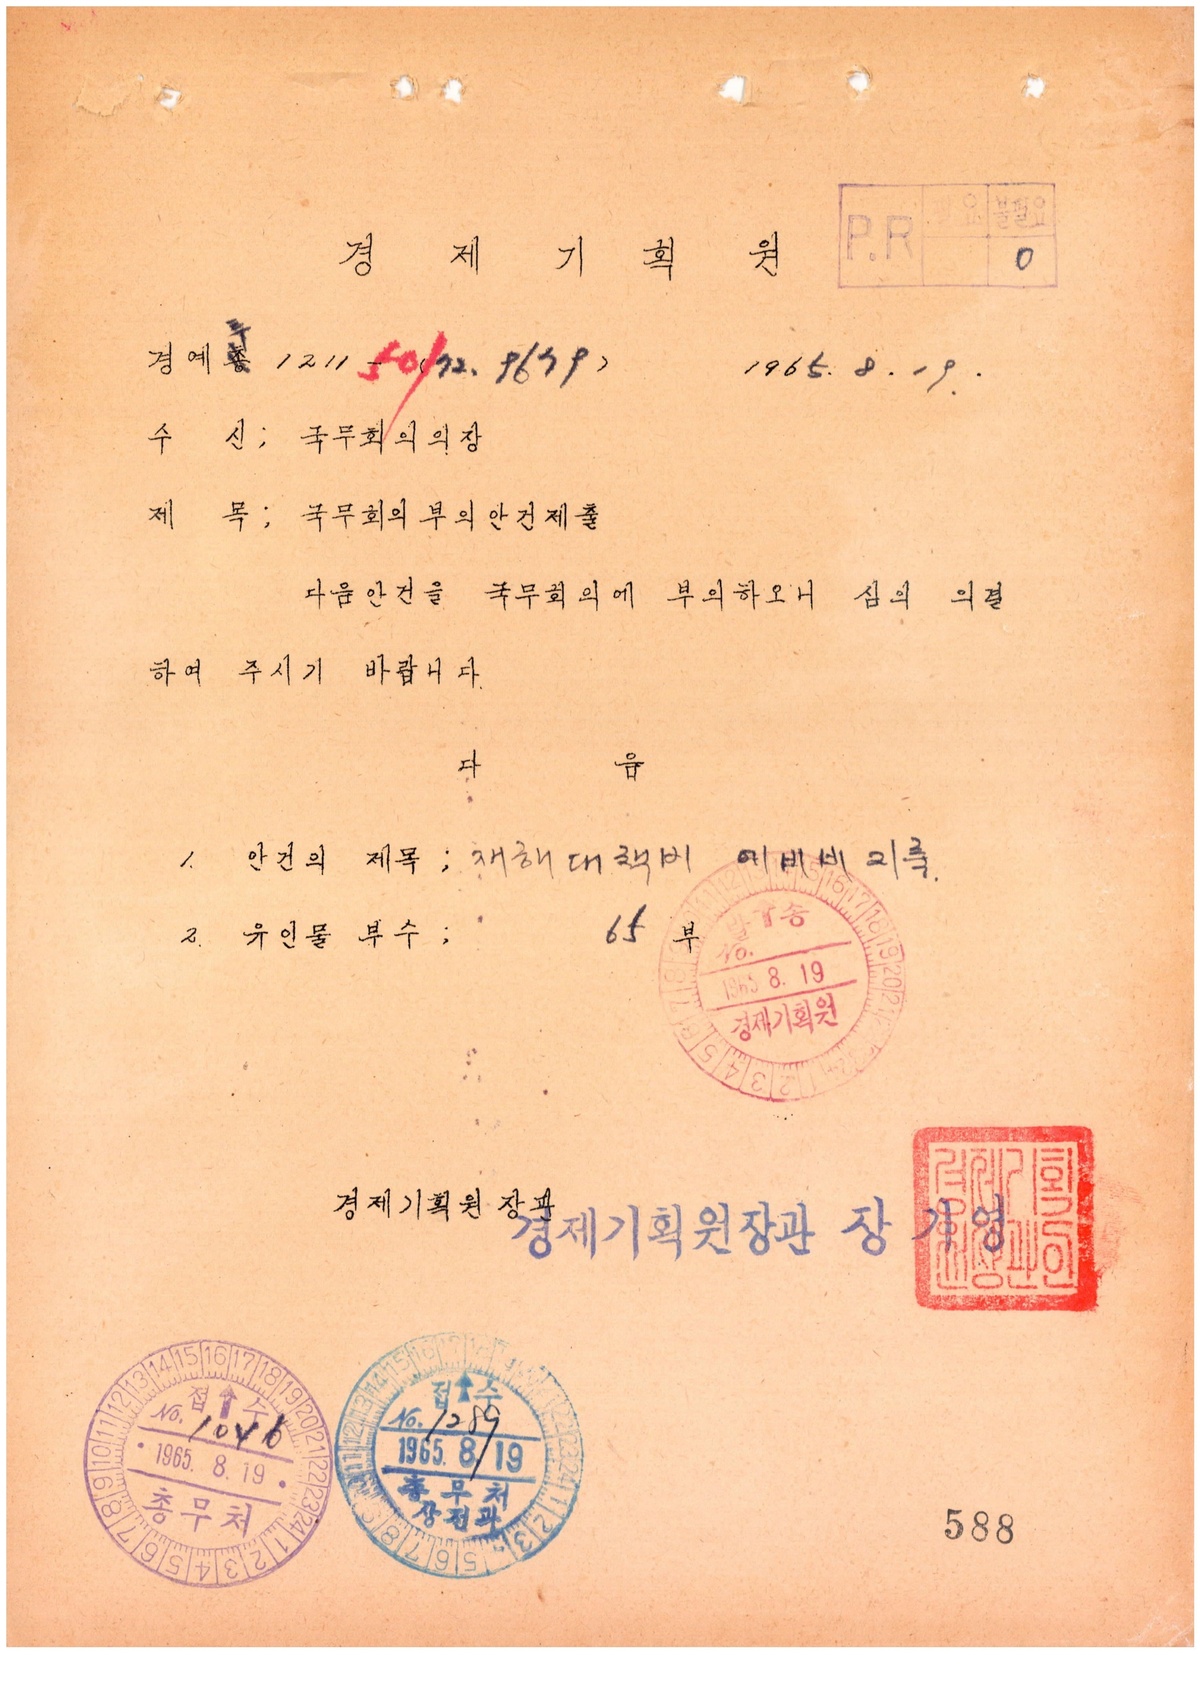 P.R 필요 불필요
0
경 제 기 획 원
경예 1211 - 501 (72. 9679) 1965. 8. 19.
수 신; 국무회의의장
제 목; 국무회의 부의안건제출
다음안건을 국무회의에 부의하오니 심의 의결
하여 주시기 바랍니다.
다 음
1. 안건의 제목; 재해대책비 예비비 지출.
2. 유인물 부수; 65 부
발 송
No.
1965 8. 19
경제기획원
경제기획원 장관
경제기획원장관 장 기 영
접 수
No. 1046
1965. 8. 19
총무처
접 수
No. 1289
1965. 8. 19
총무처
상전과
588